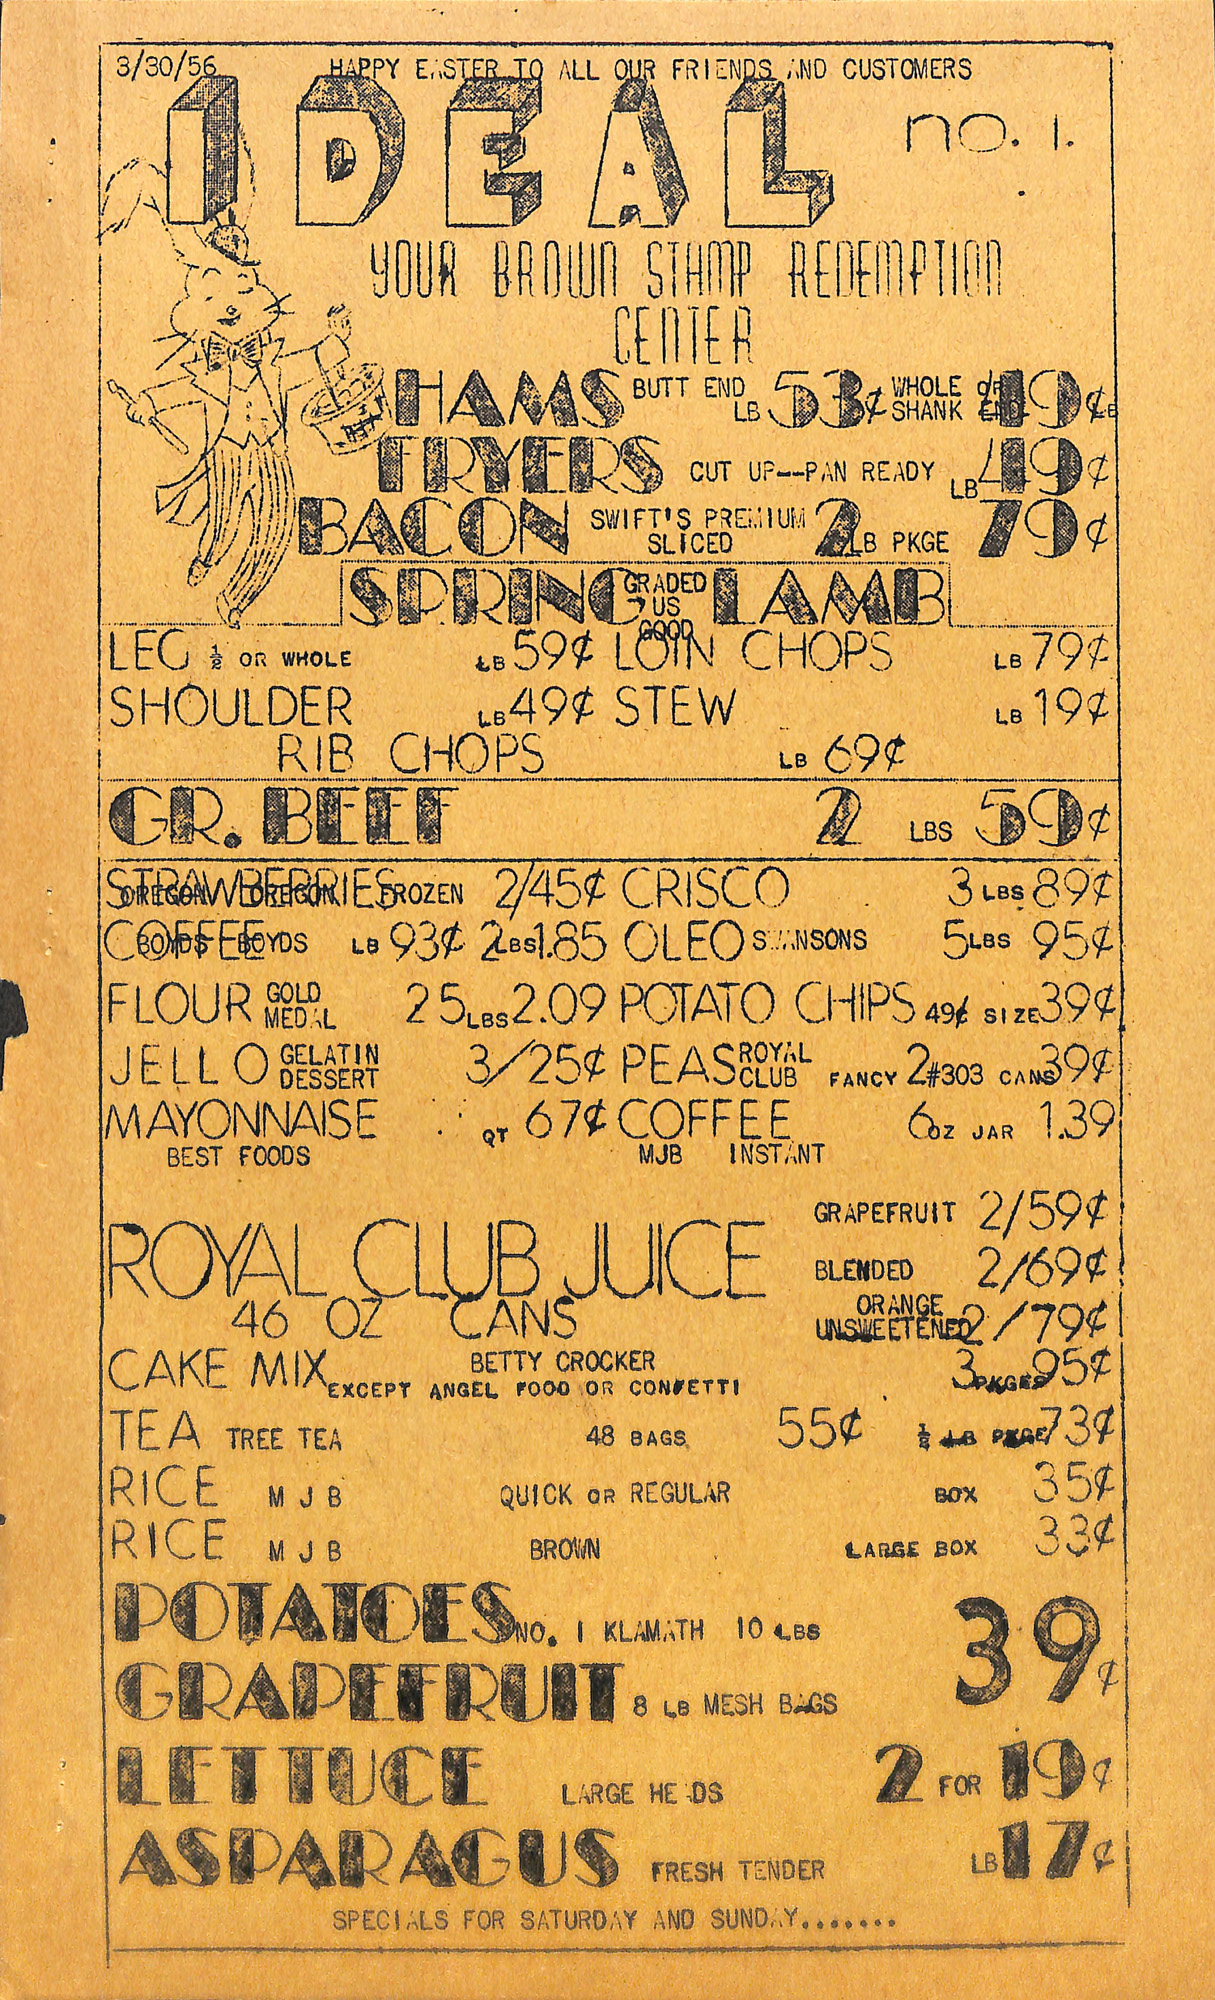 3/30/56 HAPPY EASTER TO ALL OUR FRIENDS AND CUSTOMERS
IDEAL no. 1.
YOUR BROWN STAMP REDEMPTION
CENTER
HAMS BUTT END LB 53¢ WHOLE OR SHANK END 49¢ LB
FRYERS CUT UP--PAN READY LB 49¢
BACON SWIFT'S PREMIUM SLICED 2 LB PKGE 79¢
SPRING GRADED US GOOD LAMB
LEG ½ OR WHOLE LB 59¢ LOIN CHOPS LB 79¢
SHOULDER LB 49¢ STEW LB 19¢
RIB CHOPS LB 69¢
GR. BEEF 2 LBS 59¢
STRAWBERRIES OREGON OREGON FROZEN 2/45¢ CRISCO 3 LBS 89¢
COFFEE BOYDS BOYDS LB 93¢ 2 LBS 1.85 OLEO SWANSONS 5 LBS 95¢
FLOUR GOLD MEDAL 25 LBS 2.09 POTATO CHIPS 49¢ SIZE 39¢
JELLO GELATIN DESSERT 3/25¢ PEAS ROYAL CLUB FANCY 2 #303 CANS 39¢
MAYONNAISE QT 67¢ COFFEE 6 OZ JAR 1.39
BEST FOODS MJB INSTANT
GRAPEFRUIT 2/59¢
ROYAL CLUB JUICE BLENDED 2/69¢
46 OZ CANS ORANGE UNSWEETENED 2/79¢
CAKE MIX BETTY CROCKER EXCEPT ANGEL FOOD OR CONFETTI 3 PKGES 95¢
TEA TREE TEA 48 BAGS 55¢ ½ LB PKGE 73¢
RICE M J B QUICK OR REGULAR BOX 35¢
RICE M J B BROWN LARGE BOX 33¢
POTATOES NO. 1 KLAMATH 10 LBS
39¢
GRAPEFRUIT 8 LB MESH BAGS
LETTUCE LARGE HEADS 2 FOR 19¢
ASPARAGUS FRESH TENDER LB 17¢
SPECIALS FOR SATURDAY AND SUNDAY.......